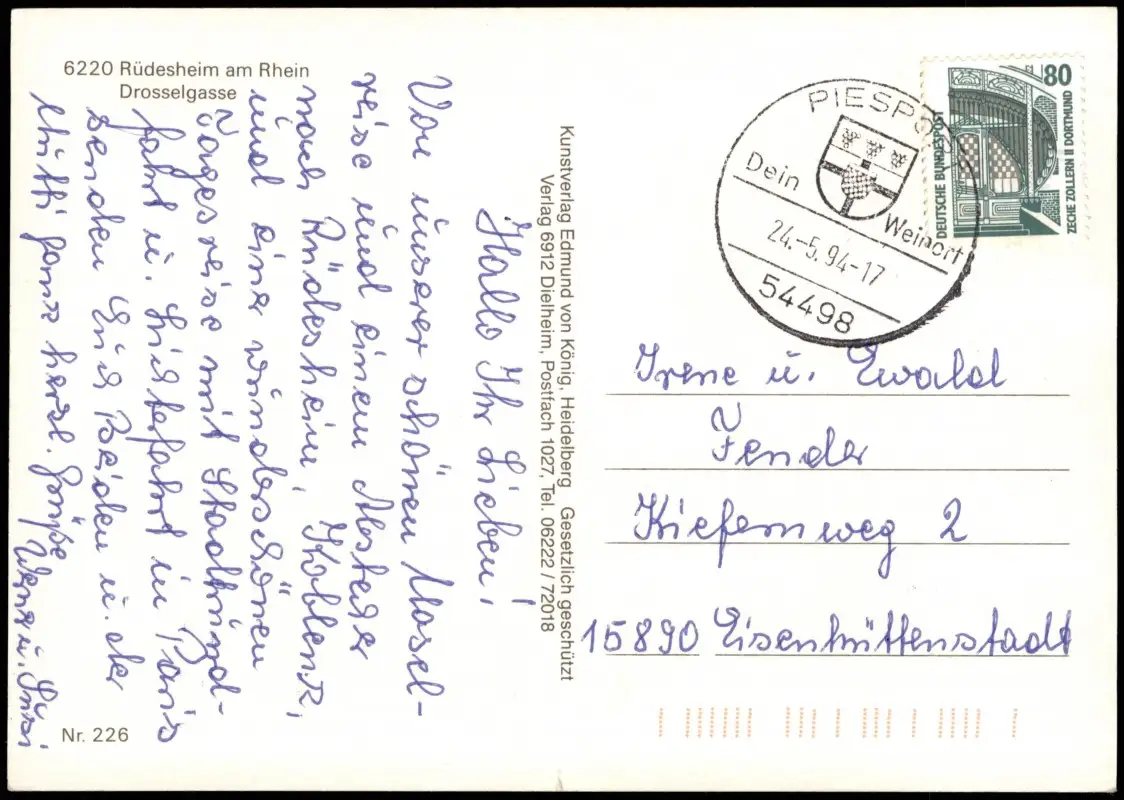 6220 Rüdesheim am Rhein
Drosselgasse
Hallo Ihr Lieben!
Von unserer schönen Mosel-
reise und einem Abstecher
nach Rüdesheim, Koblenz,
und einer wunderschönen
Tagesreise mit Stadtrund-
fahrt u. Lichterfahrt in Paris
senden Euch Beiden u. der
Mutti ganz herzl. Grüße
Werner u. Susi
Nr. 226
Kunstverlag Edmund von König, Heidelberg Gesetzlich geschützt
Verlag 6912 Dielheim, Postfach 1027, Tel. 06222/72018
PIESPORT
Dein Weinort
24.-5.94-17
54498
80
DEUTSCHE BUNDESPOST
ZECHE ZOLLERN II DORTMUND
Irene u. Ewald
Fender
Kiefernweg 2
15890 Eisenhüttenstadt